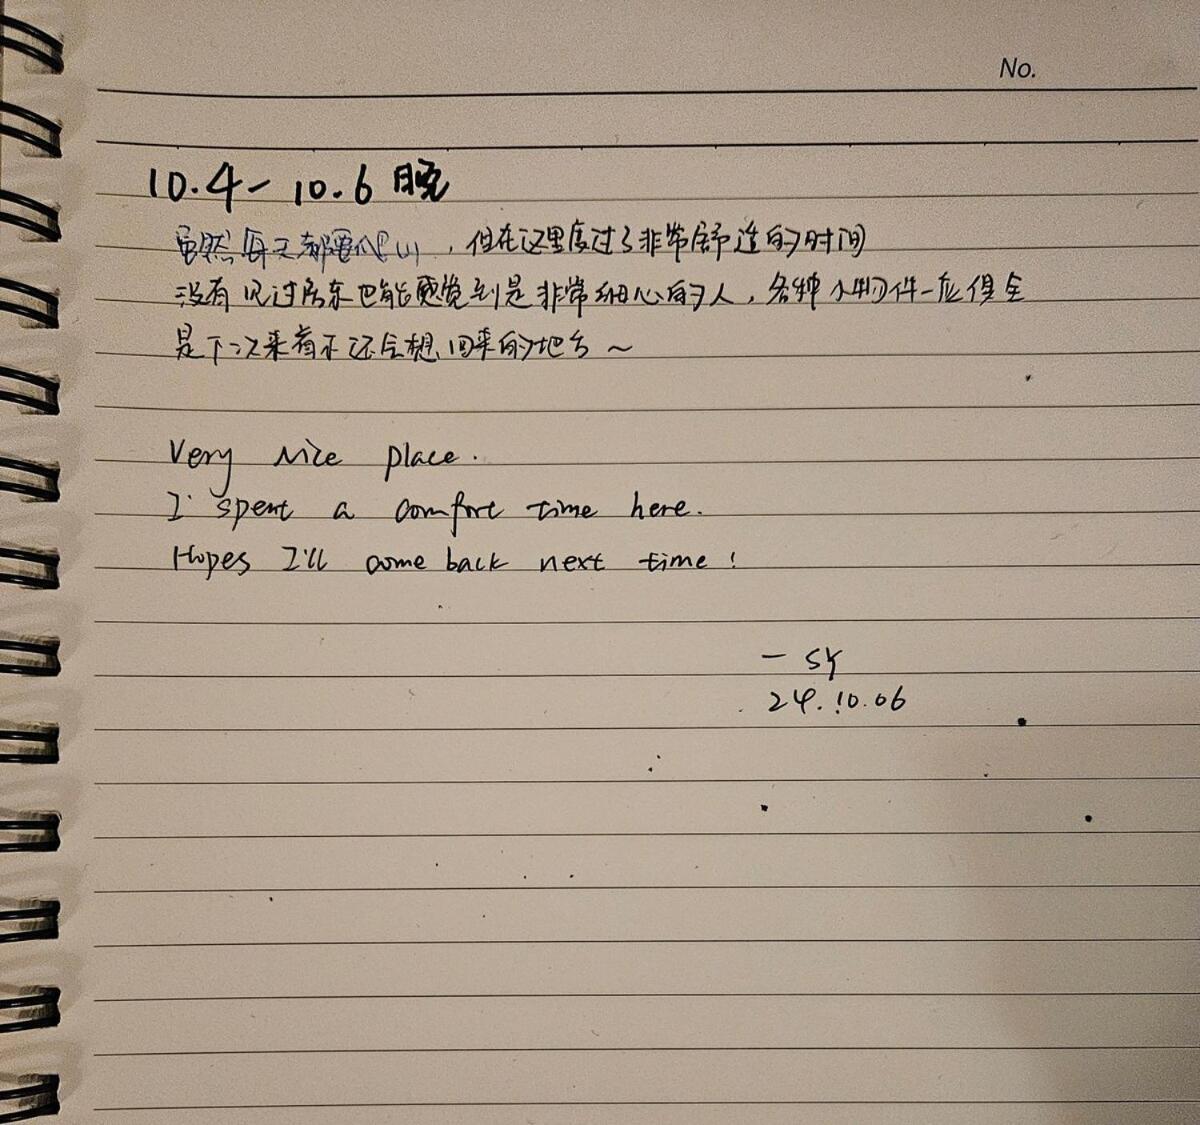 No.
10.4 - 10.6 晚
虽然每天都要爬山，但在这里度过了非常舒适的时间
没有见过房东也能感觉到是非常细心的人，各种小物件一应俱全
是下次来首尔还会想回来的地方～
Very nice place.
I spent a comfort time here.
Hopes I'll come back next time!
— SY
24.10.06